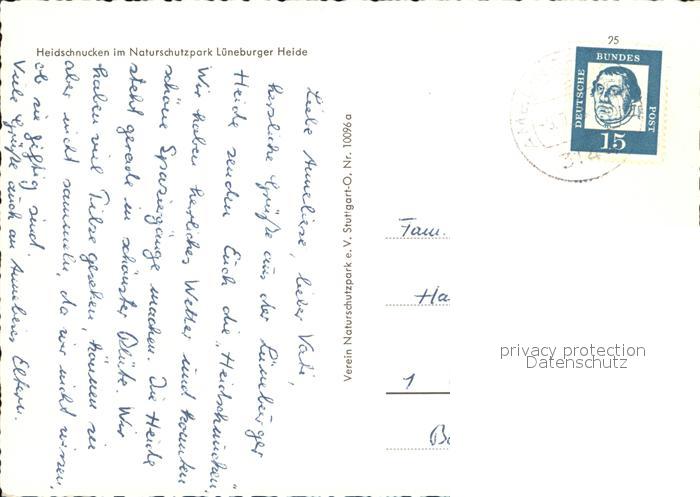 Heidschnucken im Naturschutzpark Lüneburger Heide
Liebe Anneliese, lieber Vati,
herzliche Grüße aus der Lüneburger
Heide senden Euch die „Heidschnucken“
Wir haben herrliches Wetter und konnten
schöne Spaziergänge machen. Die Heide
steht gerade in schönster Blüte. Wir
haben viel Pilze gesehen, können sie
aber nicht sammeln, da wir nicht wissen,
ob sie giftig sind.
Viele Grüße auch an Annelieses Eltern.
Verein Naturschutzpark e. V. Stuttgart-O, Nr. 10096 a
25
DEUTSCHE
BUNDES
POST
15
314
Fam.
Ha
1
B
privacy protection
Datenschutz